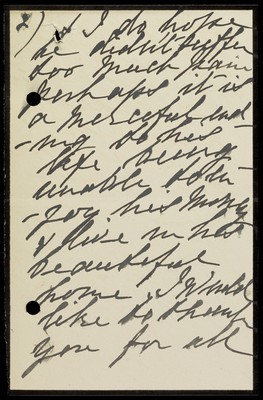 2) & I do hope
he didnt suffer
too much pain
perhaps it is
a merceful end
-ing to his
life being
unable to en-
-joy his money
& live in his
beautiful
home. I would
like to thank
you for all